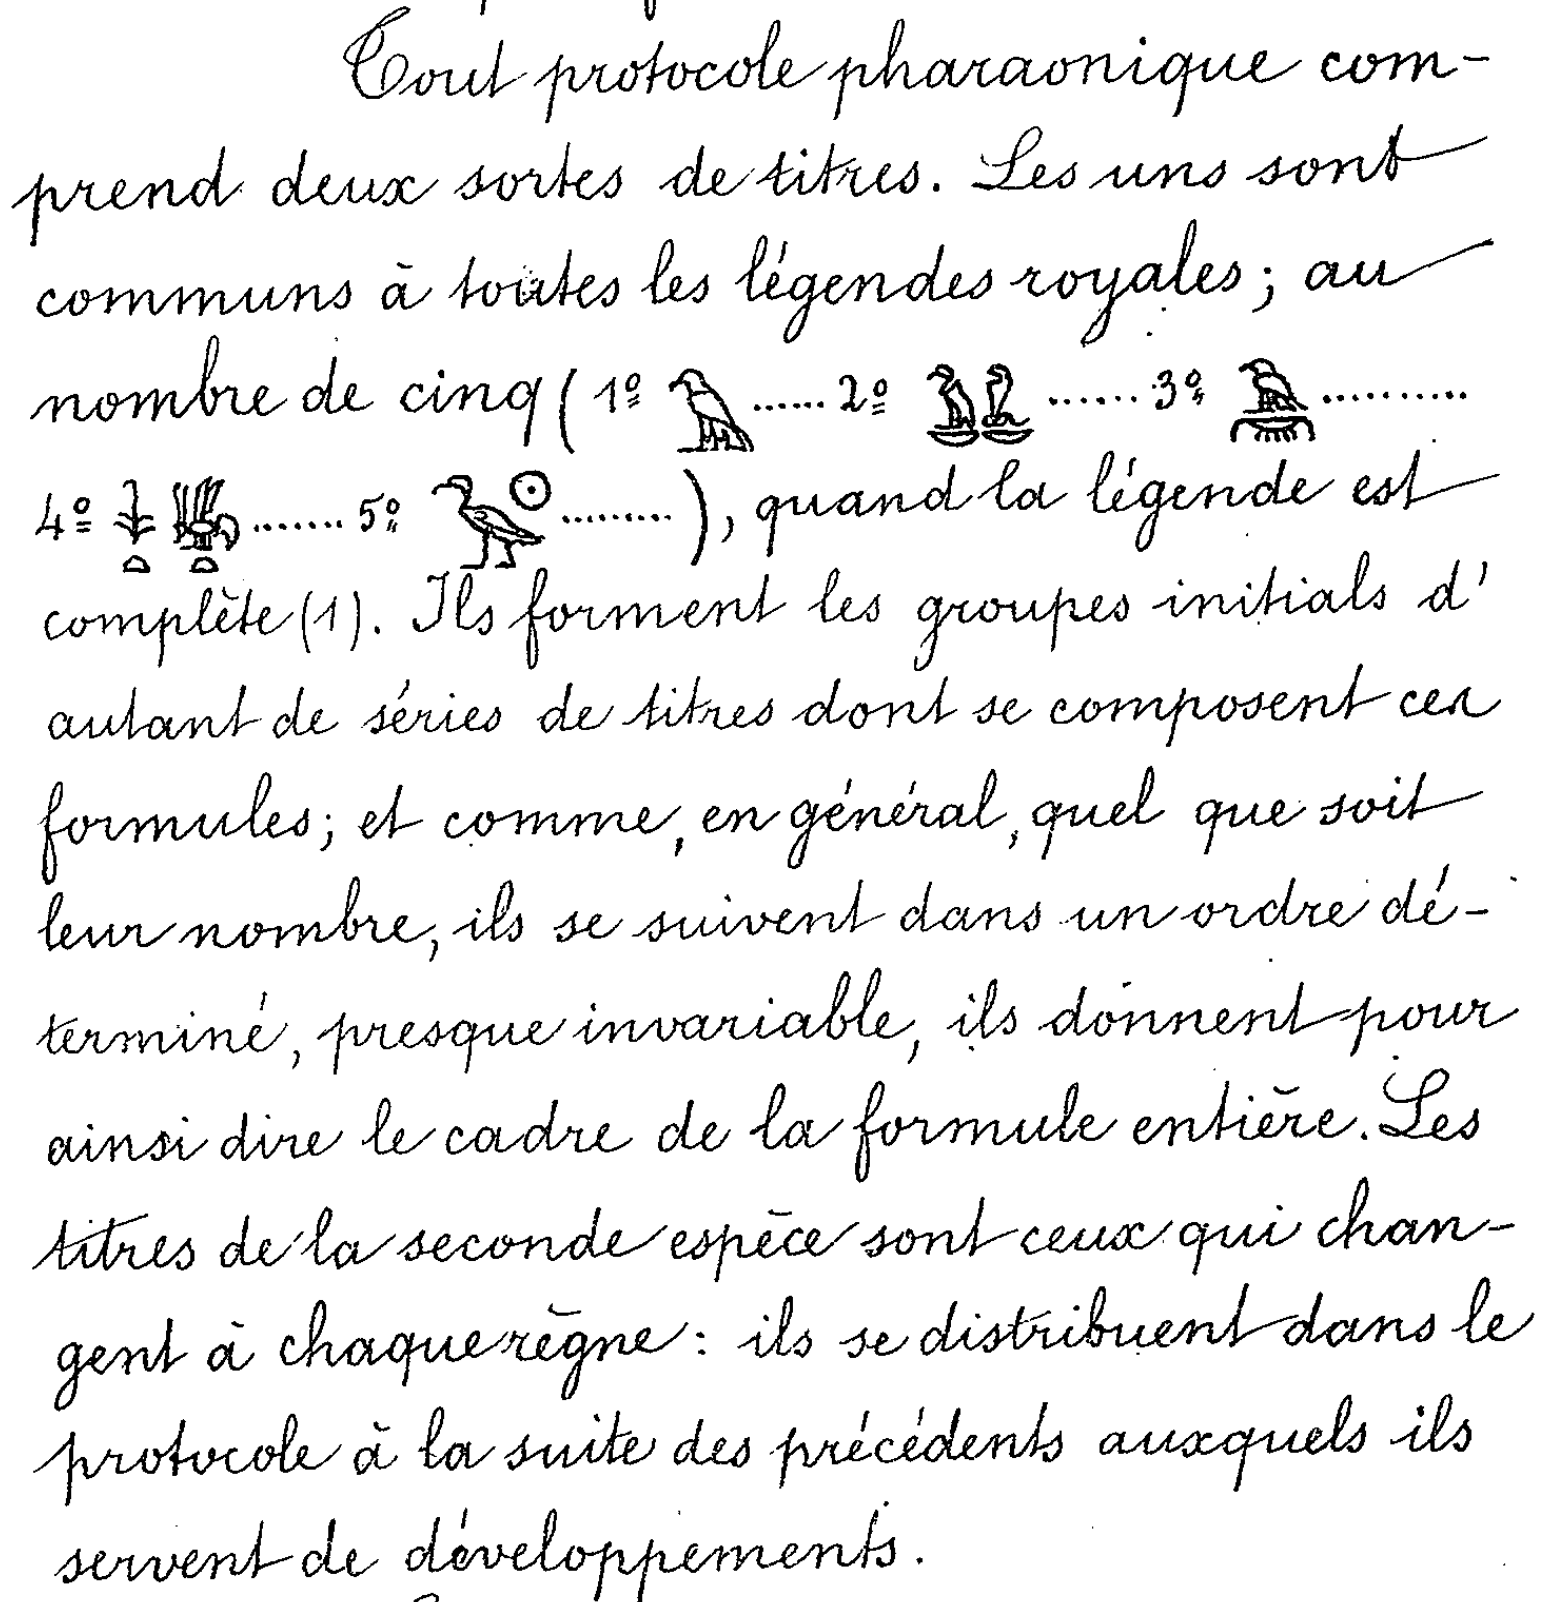 Tout protocole pharaonique com-
prend deux sortes de titres. Les uns sont
communs à toutes les légendes royales; au
nombre de cinq (1º 𓅃 ...... 2º 𓅒 ....... 3º 𓅉 ..........
4º 𓇓𓏏𓆤𓏏 ....... 5º 𓅭𓇳 ........), quand la légende est
complète (1). Ils forment les groupes initials d'
autant de séries de titres dont se composent ces
formules; et comme, en général, quel que soit
leur nombre, ils se suivent dans un ordre dé-
terminé, presque invariable, ils donnent pour
ainsi dire le cadre de la formule entière. Les
titres de la seconde espèce sont ceux qui chan-
gent à chaque règne: ils se distribuent dans le
protocole à la suite des précédents auxquels ils
servent de développements.